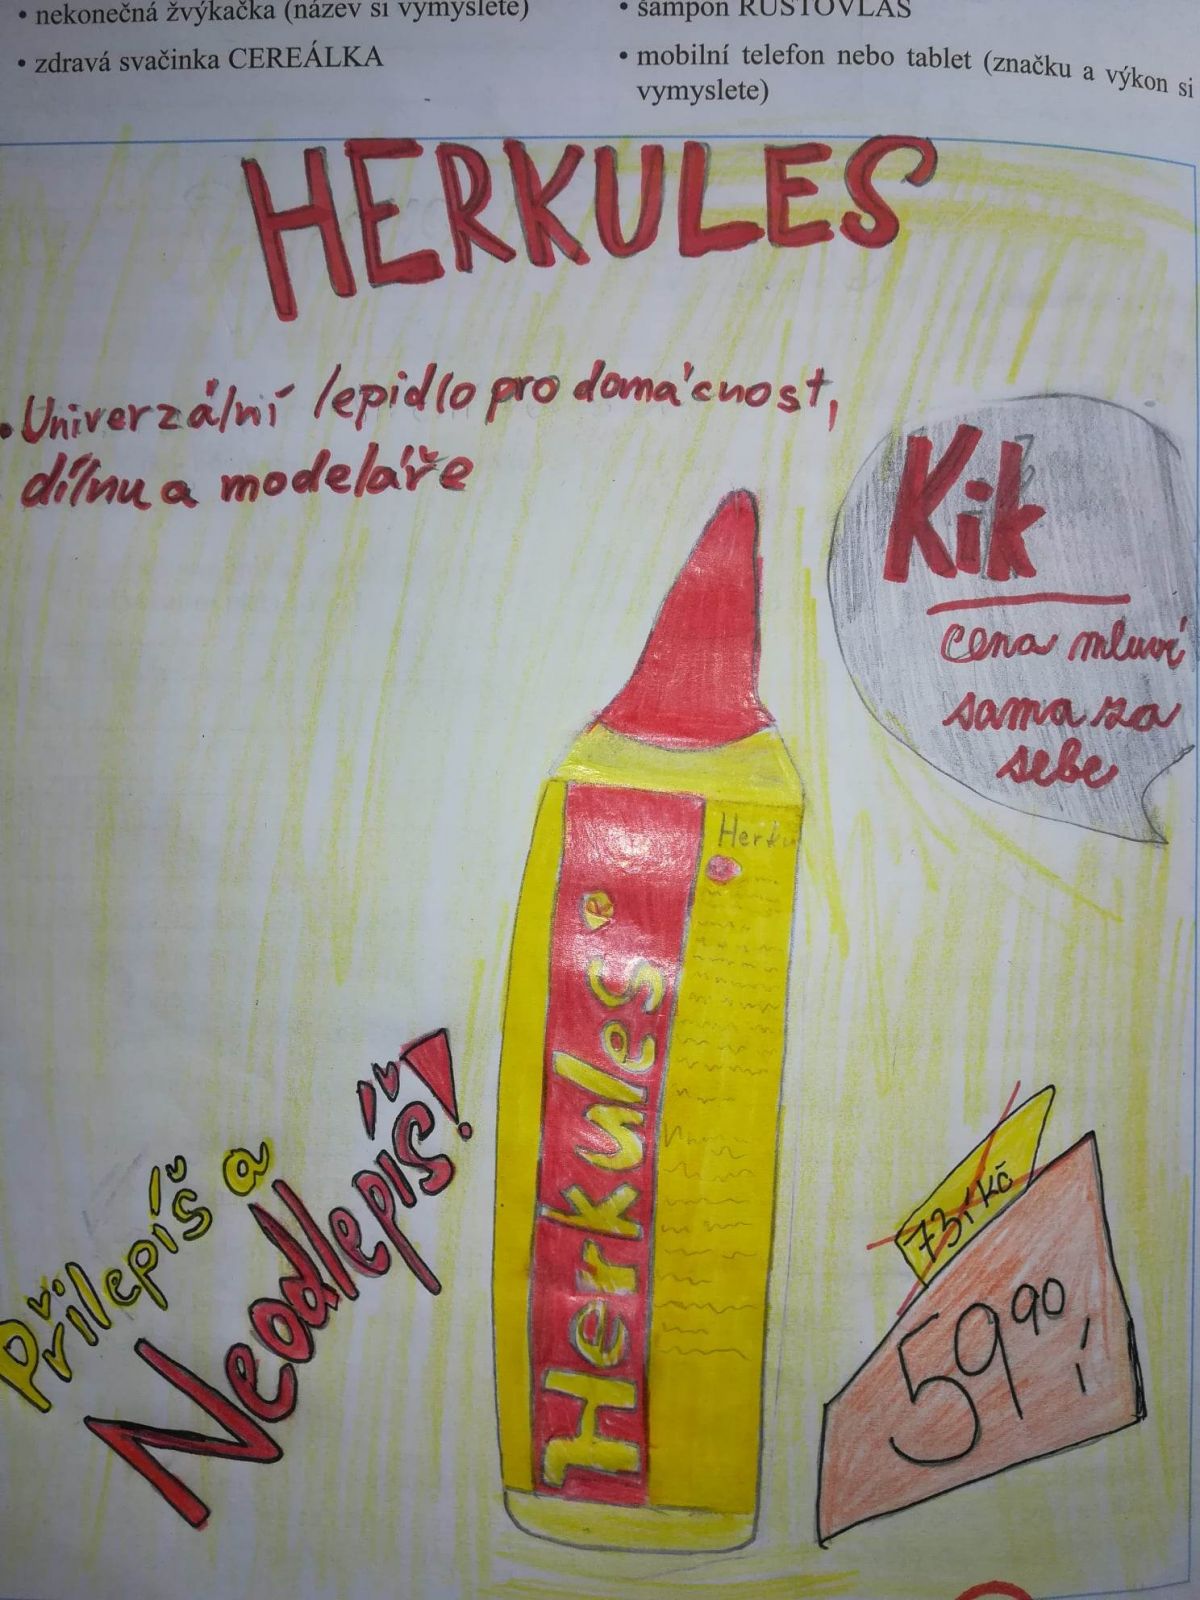 • nekonečná žvýkačka (název si vymyslete)
• zdravá svačinka CEREÁLKA
• šampon RŮSTOVLAS
• mobilní telefon nebo tablet (značku a výkon si
vymyslete)
HERKULES
• Univerzální lepidlo pro domácnost,
dílnu a modeláře
Kik
cena mluví
sama za
sebe
Herku
Herkules®
Přilepíš a
Neodlepíš!
73,- Kč
59 90,-